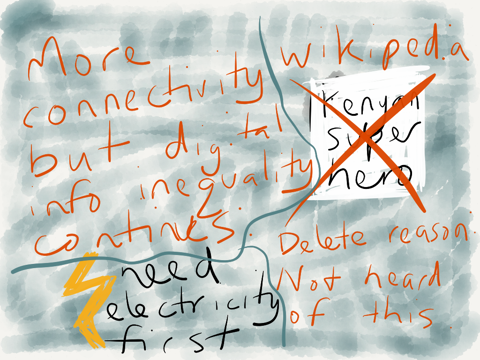 More
connectivity
but digital
info inequality
contines.
need
electricity
first
wikipedia
Kenyan
super
hero
Delete reason:
Not heard
of this